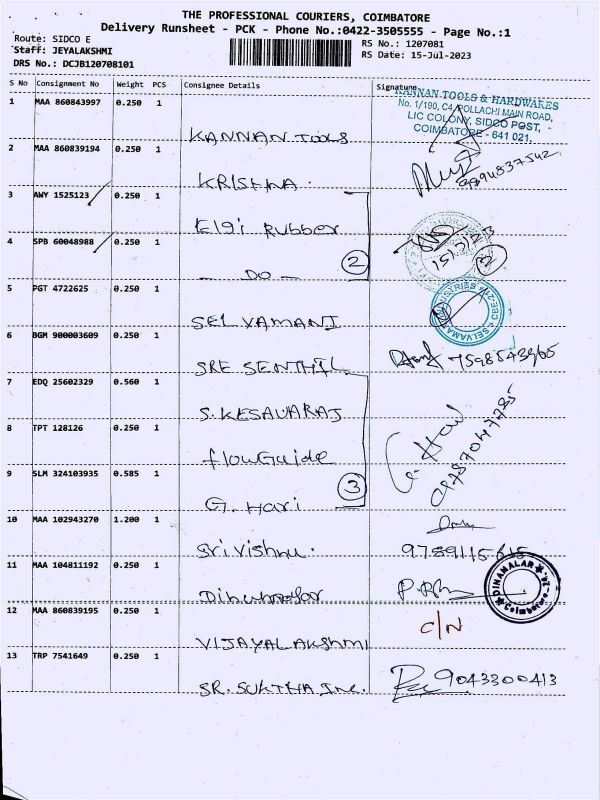 THE PROFESSIONAL COURIERS, COIMBATORE
Delivery Runsheet - PCK - Phone No.:0422-3505555 - Page No.:1
Route: SIDCO E
RS No.: 1207081
Staff: JEYALAKSHMI
RS Date: 15-Jul-2023
DRS No.: DCJB120708101
S No Consignment No Weight PCS Consignee Details Signature
KANNAN TOOLS & HARDWAKES
No. 1/190, C4, POLLACHI MAIN ROAD,
LIC COLONY, SIDCO POST,
COIMBATORE - 641 021.
1 MAA 860843997 0.250 1
KANNAN TOOLS
2 MAA 860839194 0.250 1
9894837542
KRISHNA.
3 AWY 1525123 0.250 1
Elgi Rubber
15/7/23
4 SPB 60048988 0.250 1
2 2
— DO —
5 PGT 4722625 0.250 1
SELVAMANI
6 BGM 900003609 0.250 1
7598543965
SRE SENTHIL
7 EDQ 25602329 0.560 1
S.KESAVARAJ
8 TPT 128126 0.250 1
flowGuide
9 SLM 324103935 0.585 1
3
G. Hari
10 MAA 102943270 1.200 1
Sri vishnu.
9789115615
11 MAA 104811192 0.250 1
DINAMALAR
Coimbatore
12 MAA 860839195 0.250 1
C/N
VIJAYALAKSHMI
13 TRP 7541649 0.250 1
9043300413